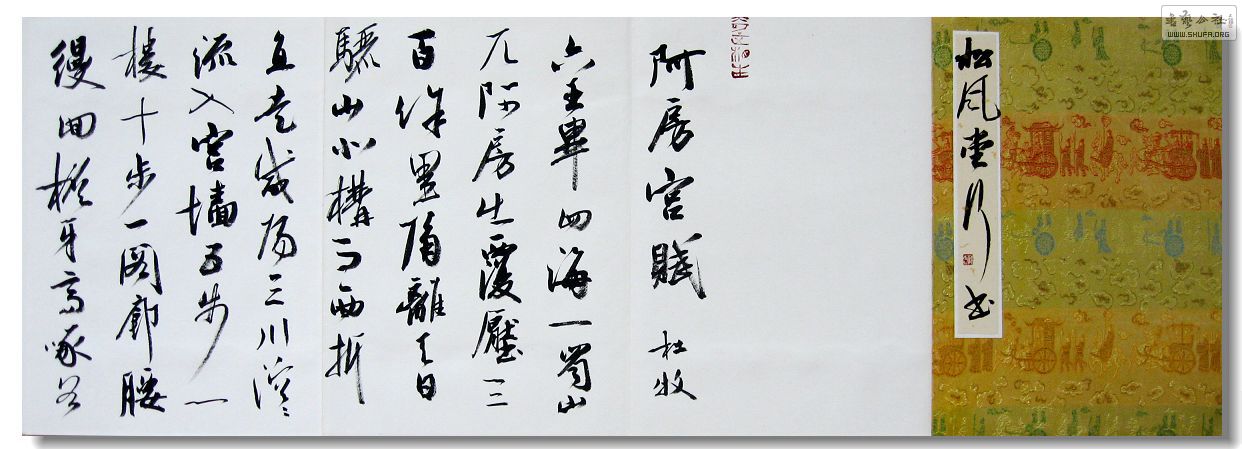 松风堂行书
阿房宫赋 杜牧
六王畢四海一蜀山
兀阿房出覆壓三
百馀里隔離天日
驪山北構而西折
直走咸陽二川溶〻
流入宫墙五步一
樓十步一閣廊腰
縵回檐牙高啄各
書藝公社
WWW.SHUFA.ORG